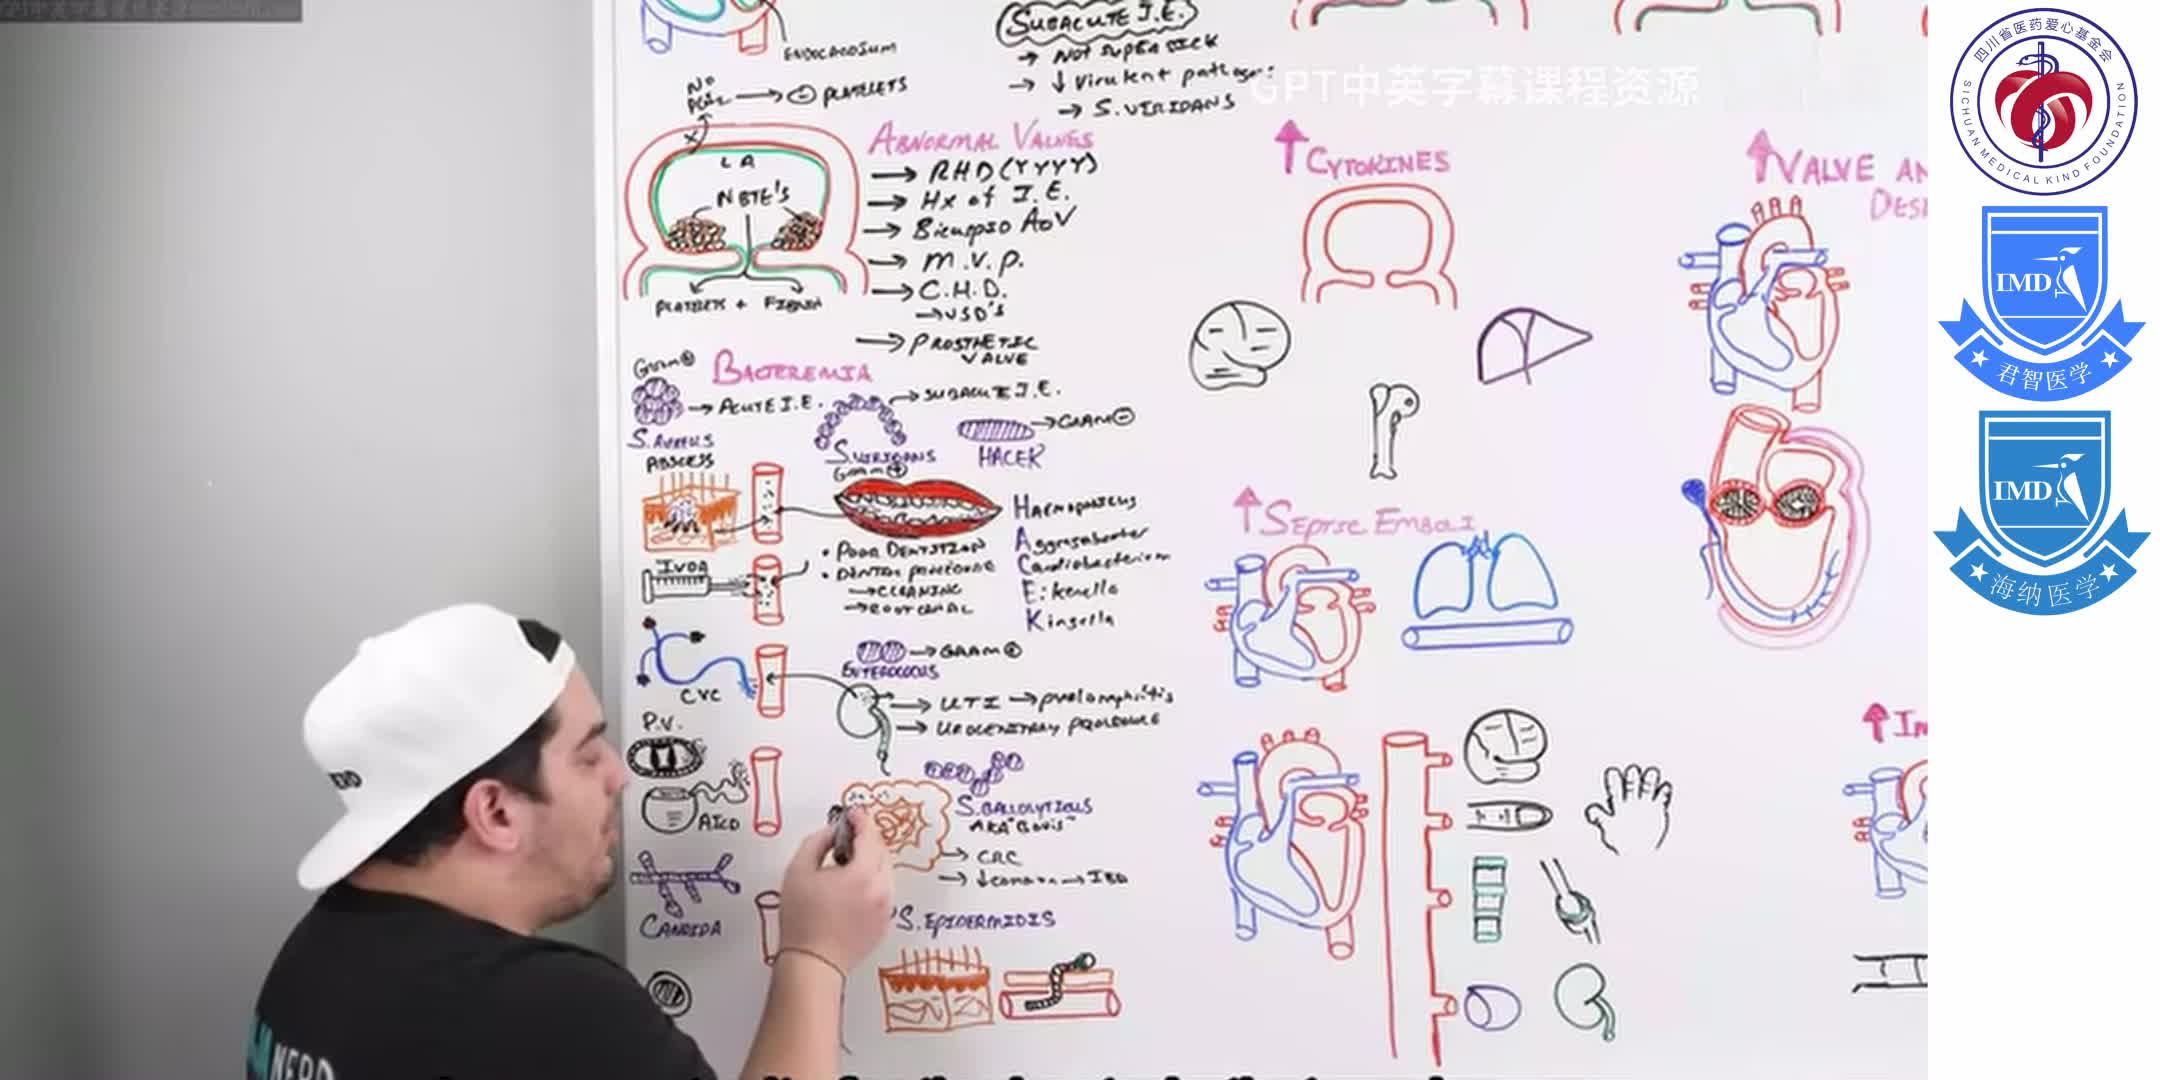 ENDOCARDIUM
SUBACUTE I.E.
→ NOT SUPER SICK
→ ↓ Virulent pathogen:
→ S. VIRIDANS
GPT中英字幕课程资源
NO
→ ⊖ PLATELETS
LA
NBTE's
PLATELETS + FIBRIN
ABNORMAL VALVES
→ RHD (YYYY)
→ Hx of I.E.
→ Bicuspid AoV
→ M.V.P.
→ C.H.D.
→ VSD'S
→ PROSTHETIC
VALVE
↑ CYTOKINES
↑ VALVE AN
DES
Gram ⊕
BACTEREMIA
→ ACUTE I.E.
→ SUBACUTE I.E.
→ GRAM ⊖
S. AUREUS
ABSCESS
S. VIRIDANS
Gram ⊕
HACEK
IVDA
• POOR DENTITION
• DENTAL PROCEDURE
→ CLEANING
→ ROOT CANAL
Haemophilus
Aggregatibacter
Cardiobacterium
Eikenella
Kingella
↑ SEPTIC EMBOLI
CVC
→ GRAM ⊕
ENTEROCOCCUS
→ UTI → pyelonephritis
→ UROGENITARY PROCEDURE
P.V.
AICD
S. GALLOLYTICUS
AKA "Bovis"
→ CRC
→ IBD
CANDIDA
S. EPIDERMIDIS
↑ Im
NERD
四川省医药爱心基金会
SICHUAN MEDICAL KIND FOUNDATION
IMD
君智医学
IMD
海纳医学